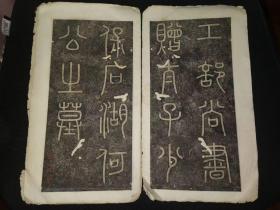 工部尚書
贈太子少
保石湖何
公之墓